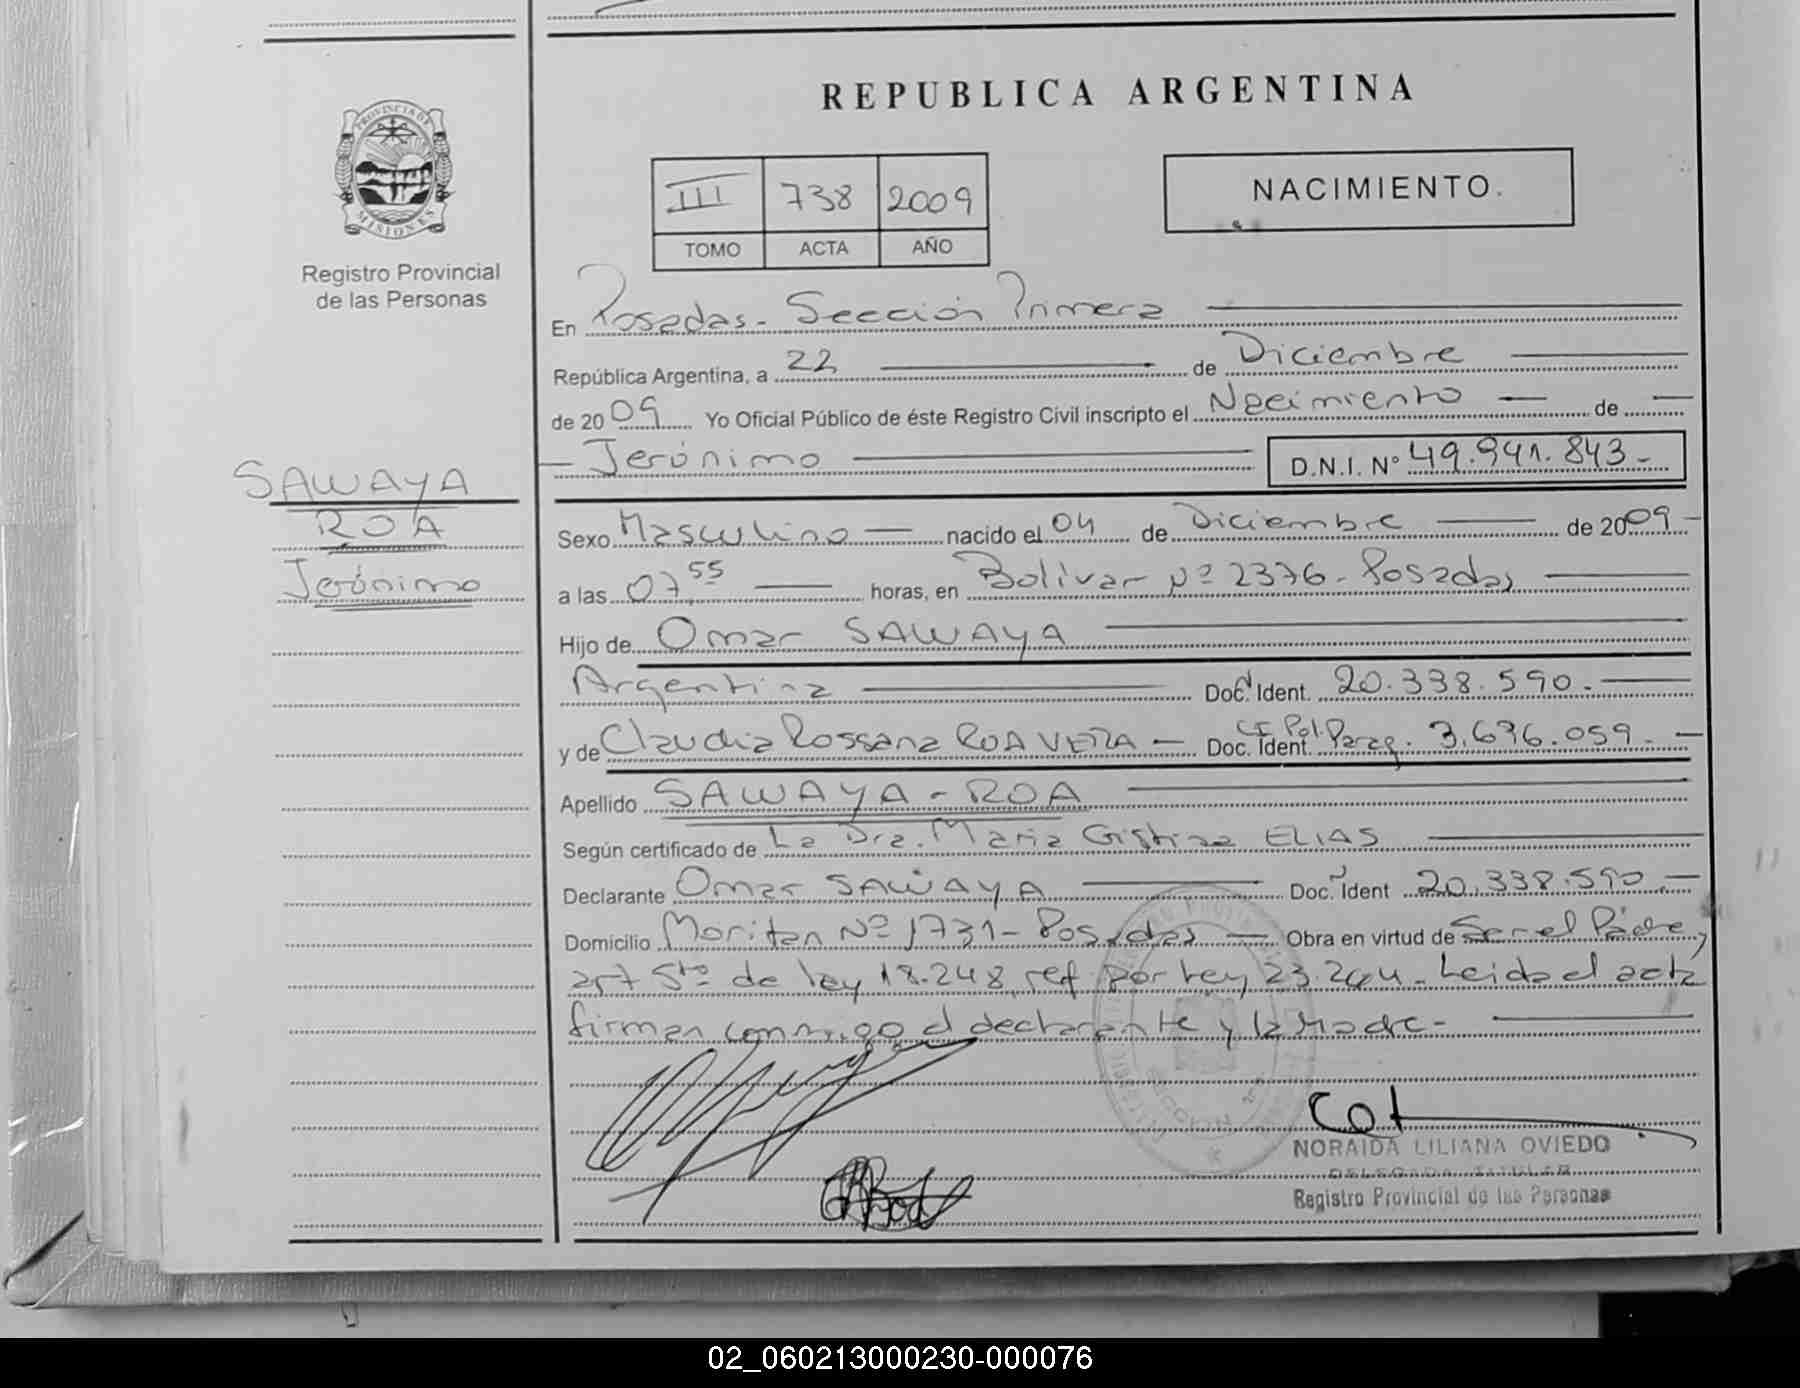 REPUBLICA ARGENTINA
PROVINCIA DE MISIONES
Registro Provincial
de las Personas
III 738 2009
TOMO ACTA AÑO
NACIMIENTO.
En Posadas - Sección Primera
República Argentina, a 22 de Diciembre
de 2009 Yo Oficial Público de éste Registro Civil inscripto el Nacimiento de
Jerónimo D.N.I. Nº 49.941.843-
SAWAYA
ROA
Jerónimo
Sexo Masculino nacido el 04 de Diciembre de 2009
a las 07,55 horas, en Bolivar Nº 2376 - Posadas
Hijo de Omar SAWAYA
Argentina Doc. Ident. 20.338.590.
y de Claudia Rossana ROA VERA Doc. Ident. CI Pol Parag. 3.636.059.
Apellido SAWAYA - ROA
Según certificado de La Dra. Maria Cristina ELIAS
Declarante Omar SAWAYA Doc. Ident 20.338.590.
Domicilio Moritan Nº 1731 - Posadas Obra en virtud de Ser el Padre,
art 5to de ley 18.248, ref por Ley 23.264 - Leida el acta
firman conmigo el declarante y la Madre -
NORAIDA LILIANA OVIEDO
DELEGADA TITULAR
Registro Provincial de las Personas
02_060213000230-000076